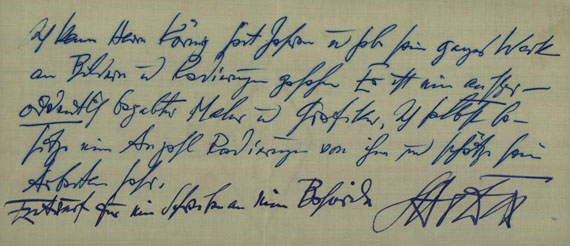 Ich kenne Herrn König seit Jahren u habe sein ganzes Werk
an Bildern u Radierungen gesehen. Er ist ein außer-
ordentlich begabter Maler u Grafiker, ich selbst be-
sitze eine Anzahl Radierungen von ihm und schätze seine
Arbeiten sehr.
Entwurf für ein Schreiben an eine Behörde